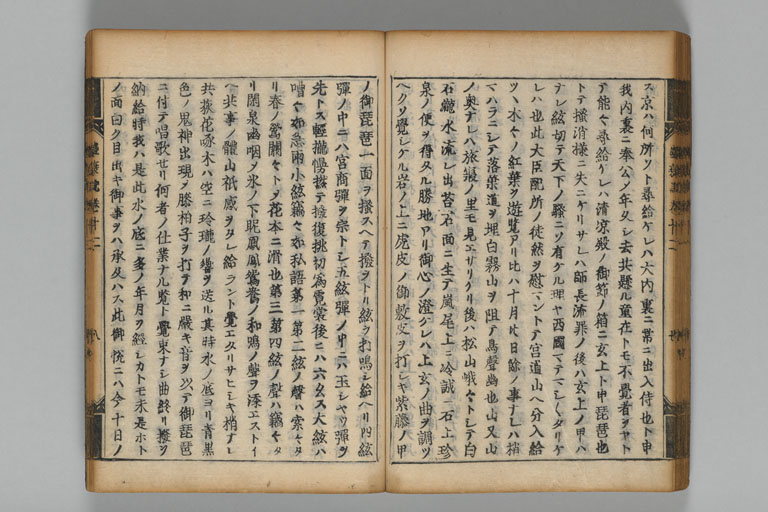 ス京ハ何所ソト尋給ケレハ大内裏ニ常ニ出入侍也ト申
我内裏ニ奉公ノ年久シ去共懸ル童在トモ不覺者ヲヤト
テ能々尋給ケレハ清凉殿ノ御節ノ箱ニ玄上ト申琵琶也
トテ掻消様ニ失ニケリサレハ師長流罪ノ後ハ玄上ノ甲ハ
ナレ絃切テ天下ノ騒ニソ有ケル理ヤ西國マテマシ〱タリケ
レハ也此大臣配所ノ徒然ヲ慰マントテ宮道山ヘ分入給
ツヽ水々ノ紅葉ヲ遊覽アリ比ハ十月廿日餘ノ事ナレハ梢
マハラニシテ落葉道ヲ埋白霧山ヲ阻テ鳥聲幽也山又山
ノ奥ナレハ旅寢ノ里モ見エサリケリ後ハ松山峨々トシテ白
石瀧水流レ出苔石面ニ生テ嵐尾上ニ冷誠ニ石上珍
泉ノ便ヲ得タル勝地アリ御心ノ澄ケレハ上玄ノ曲ヲ調ツ
ヘクソ覺シケル岩ノ上ニ虎皮ノ御敷皮ヲ打シキ紫藤ノ甲
ノ御琵琶一面ヲ掻スヘテ撥ヲトリ絃ヲ打鳴シ給ヘリ四絃
彈ノ中ニハ宮商彈ヲ宗トシ五絃彈ノ中ニハ玉シヤウ彈ヲ
先トス輕攏慢撚テ撥復挑初爲霓裳後ニハ六幺ス大絃ハ
嘈々如急雨小絃竊々如私語第一第二絃ノ聲ハ索々タ
リ春ノ鶯關々トシテ花本ニ滑也第三第四絃ノ聲ハ竊々タ
リ閑泉幽咽ノ氷ノ下昵鳳凰鴛鴦ノ和鳴ノ聲ヲ添エストイ
ヘ共事ノ體山祇感ヲタレ給ラント覺エタリサヒシキ梢ナレ
共荻花啄木ハ空ニ玲瓏ノ響ヲ送ル其時水ノ底ヨリ青黒
色ノ鬼神出現ヲ膝拍子ヲ打テ和ニ嚴キ音ヲ以テ御琵琶
ニ付テ唱歌セリ何者ノ仕業ナル覽ト覺束ナシ曲終リ撥ヲ
納給時我ハ是此水ノ底ニ多ノ年月ヲ經シカトモ未是ホト
ノ面白ク目出キ御事ヲハ承及ハス此御悦ニハ今十日ノ